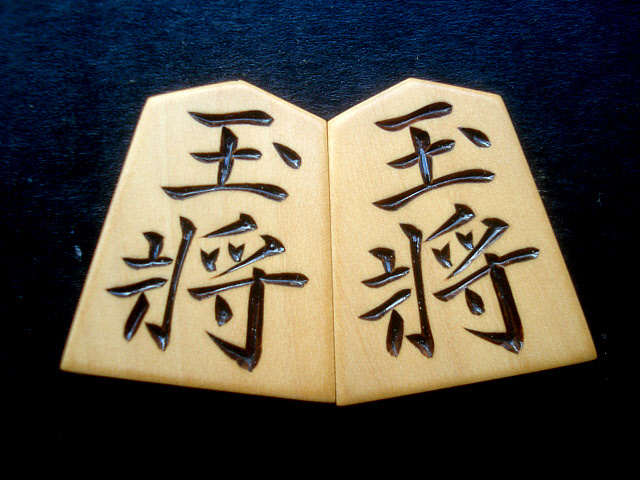 玉將
玉將